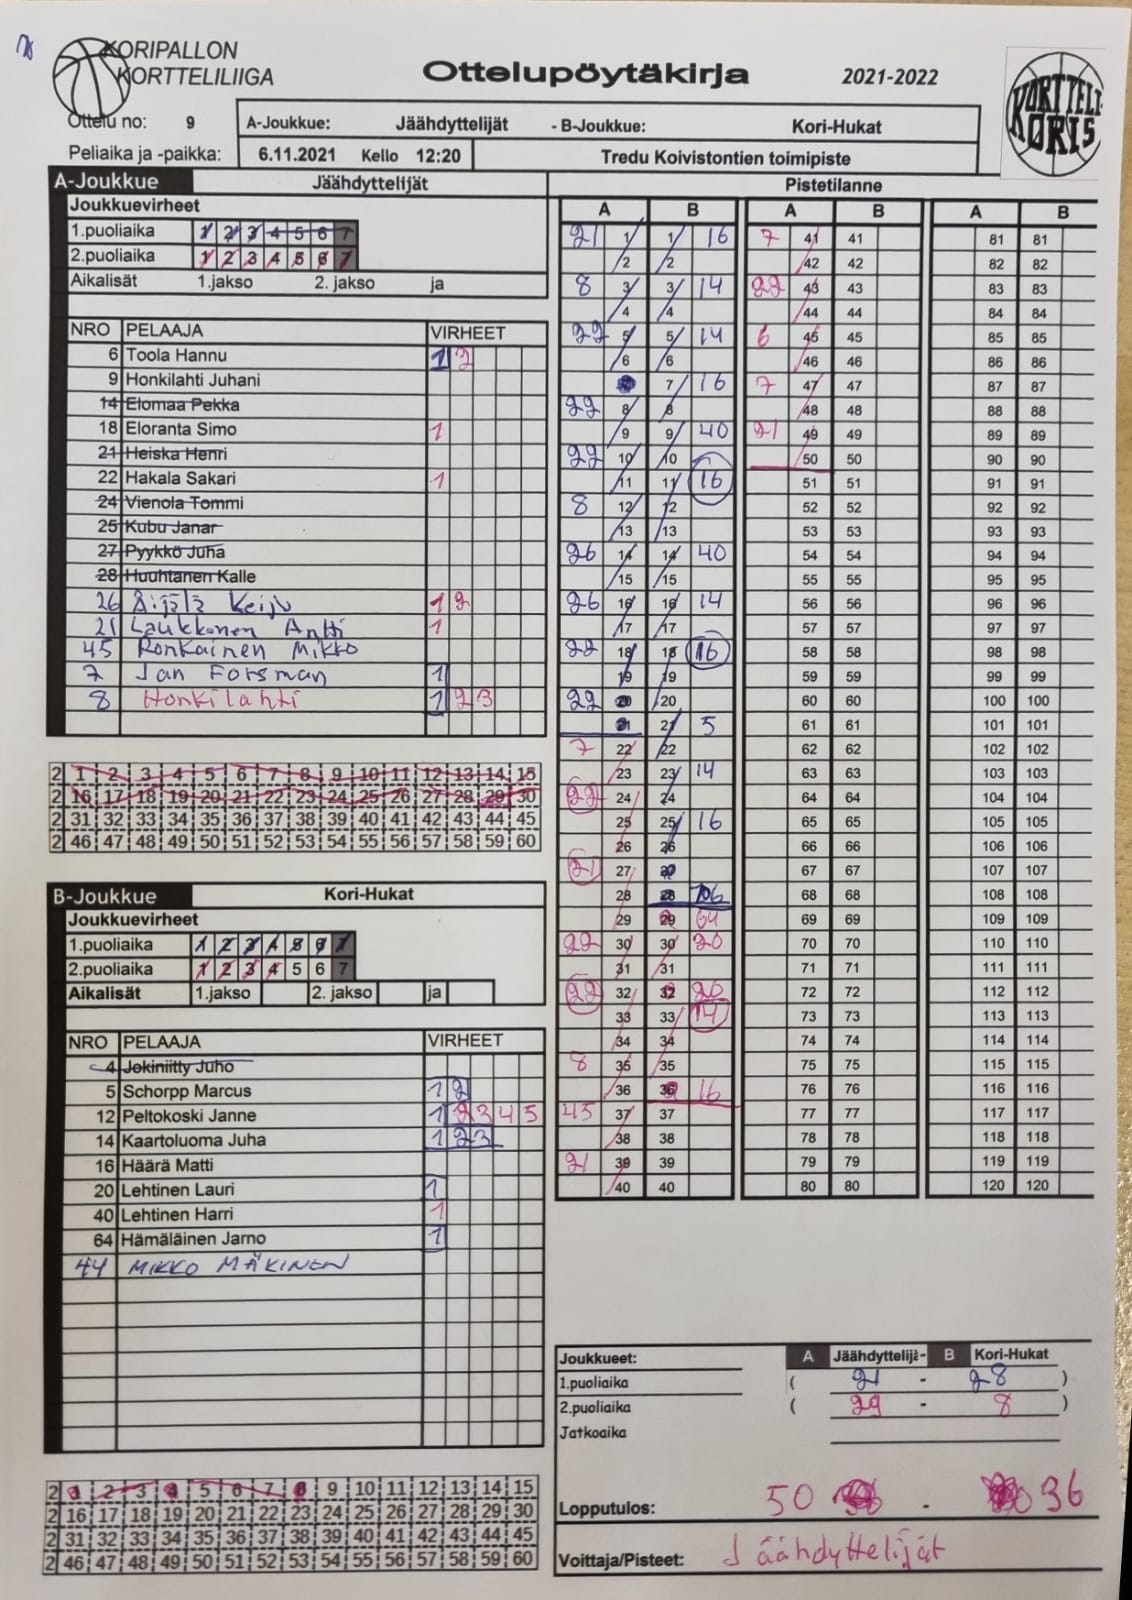 KORIPALLON
KORTTELILIIGA
Ottelupöytäkirja
2021-2022
KORTTELI
KORIS
Ottelu no: 9
A-Joukkue: Jäähdyttelijät - B-Joukkue: Kori-Hukat
Peliaika ja -paikka: 6.11.2021 Kello 12:20 Tredu Koivistontien toimipiste
A-Joukkue Jäähdyttelijät
Joukkuevirheet
1.puoliaika 1 2 3 4 5 6 7
2.puoliaika 1 2 3 4 5 6 7
Aikalisät 1.jakso 2. jakso ja
NRO PELAAJA VIRHEET
6 Toola Hannu 1 2
9 Honkilahti Juhani
14 Elomaa Pekka
18 Eloranta Simo 1
21 Heiska Henri
22 Hakala Sakari 1
24 Vienola Tommi
25 Kubu Janar
27 Pyykkö Juha
28 Huuhtanen Kalle
26 Äijälä Keijo 1 2
21 Laukkonen Antti 1
45 Ronkainen Mikko
7 Jan Forsman 1
8 Honkilahti 1 2 3
2 1 2 3 4 5 6 7 8 9 10 11 12 13 14 15
2 16 17 18 19 20 21 22 23 24 25 26 27 28 29 30
2 31 32 33 34 35 36 37 38 39 40 41 42 43 44 45
2 46 47 48 49 50 51 52 53 54 55 56 57 58 59 60
B-Joukkue Kori-Hukat
Joukkuevirheet
1.puoliaika 1 2 3 4 5 6 7
2.puoliaika 1 2 3 4 5 6 7
Aikalisät 1.jakso 2. jakso ja
NRO PELAAJA VIRHEET
4 Jokiniitty Juho
5 Schorpp Marcus 1 2
12 Peltokoski Janne 1 2 3 4 5
14 Kaartoluoma Juha 1 2 3
16 Häärä Matti
20 Lehtinen Lauri 1
40 Lehtinen Harri 1
64 Hämäläinen Jarno 1
44 MIKKO MÄKINEN
2 1 2 3 4 5 6 7 8 9 10 11 12 13 14 15
2 16 17 18 19 20 21 22 23 24 25 26 27 28 29 30
2 31 32 33 34 35 36 37 38 39 40 41 42 43 44 45
2 46 47 48 49 50 51 52 53 54 55 56 57 58 59 60
Pistetilanne
A B A B A B
21 1 1 16 7 41 41 81 81
2 2 42 42 82 82
8 3 3 14 22 43 43 83 83
4 4 44 44 84 84
22 5 5 14 6 45 45 85 85
6 6 46 46 86 86
7 16 7 47 47 87 87
22 8 8 48 48 88 88
9 9 40 21 49 49 89 89
22 10 10 50 50 90 90
11 11 16 51 51 91 91
8 12 12 52 52 92 92
13 13 53 53 93 93
26 14 14 40 54 54 94 94
15 15 55 55 95 95
26 16 16 14 56 56 96 96
17 17 57 57 97 97
22 18 18 16 58 58 98 98
19 19 59 59 99 99
22 20 20 60 60 100 100
21 21 5 61 61 101 101
7 22 22 62 62 102 102
23 23 14 63 63 103 103
22 24 24 64 64 104 104
25 25 16 65 65 105 105
26 26 66 66 106 106
21 27 27 67 67 107 107
28 28 68 68 108 108
29 29 64 69 69 109 109
22 30 30 20 70 70 110 110
31 31 71 71 111 111
22 32 32 20 72 72 112 112
33 33 14 73 73 113 113
34 34 74 74 114 114
8 35 35 75 75 115 115
36 36 16 76 76 116 116
45 37 37 77 77 117 117
38 38 78 78 118 118
21 39 39 79 79 119 119
40 40 80 80 120 120
Joukkueet: A Jäähdyttelijä- B Kori-Hukat
1.puoliaika ( 21 - 28 )
2.puoliaika ( 29 - 8 )
Jatkoaika
Lopputulos: 50 - 36
Voittaja/Pisteet: Jäähdyttelijät